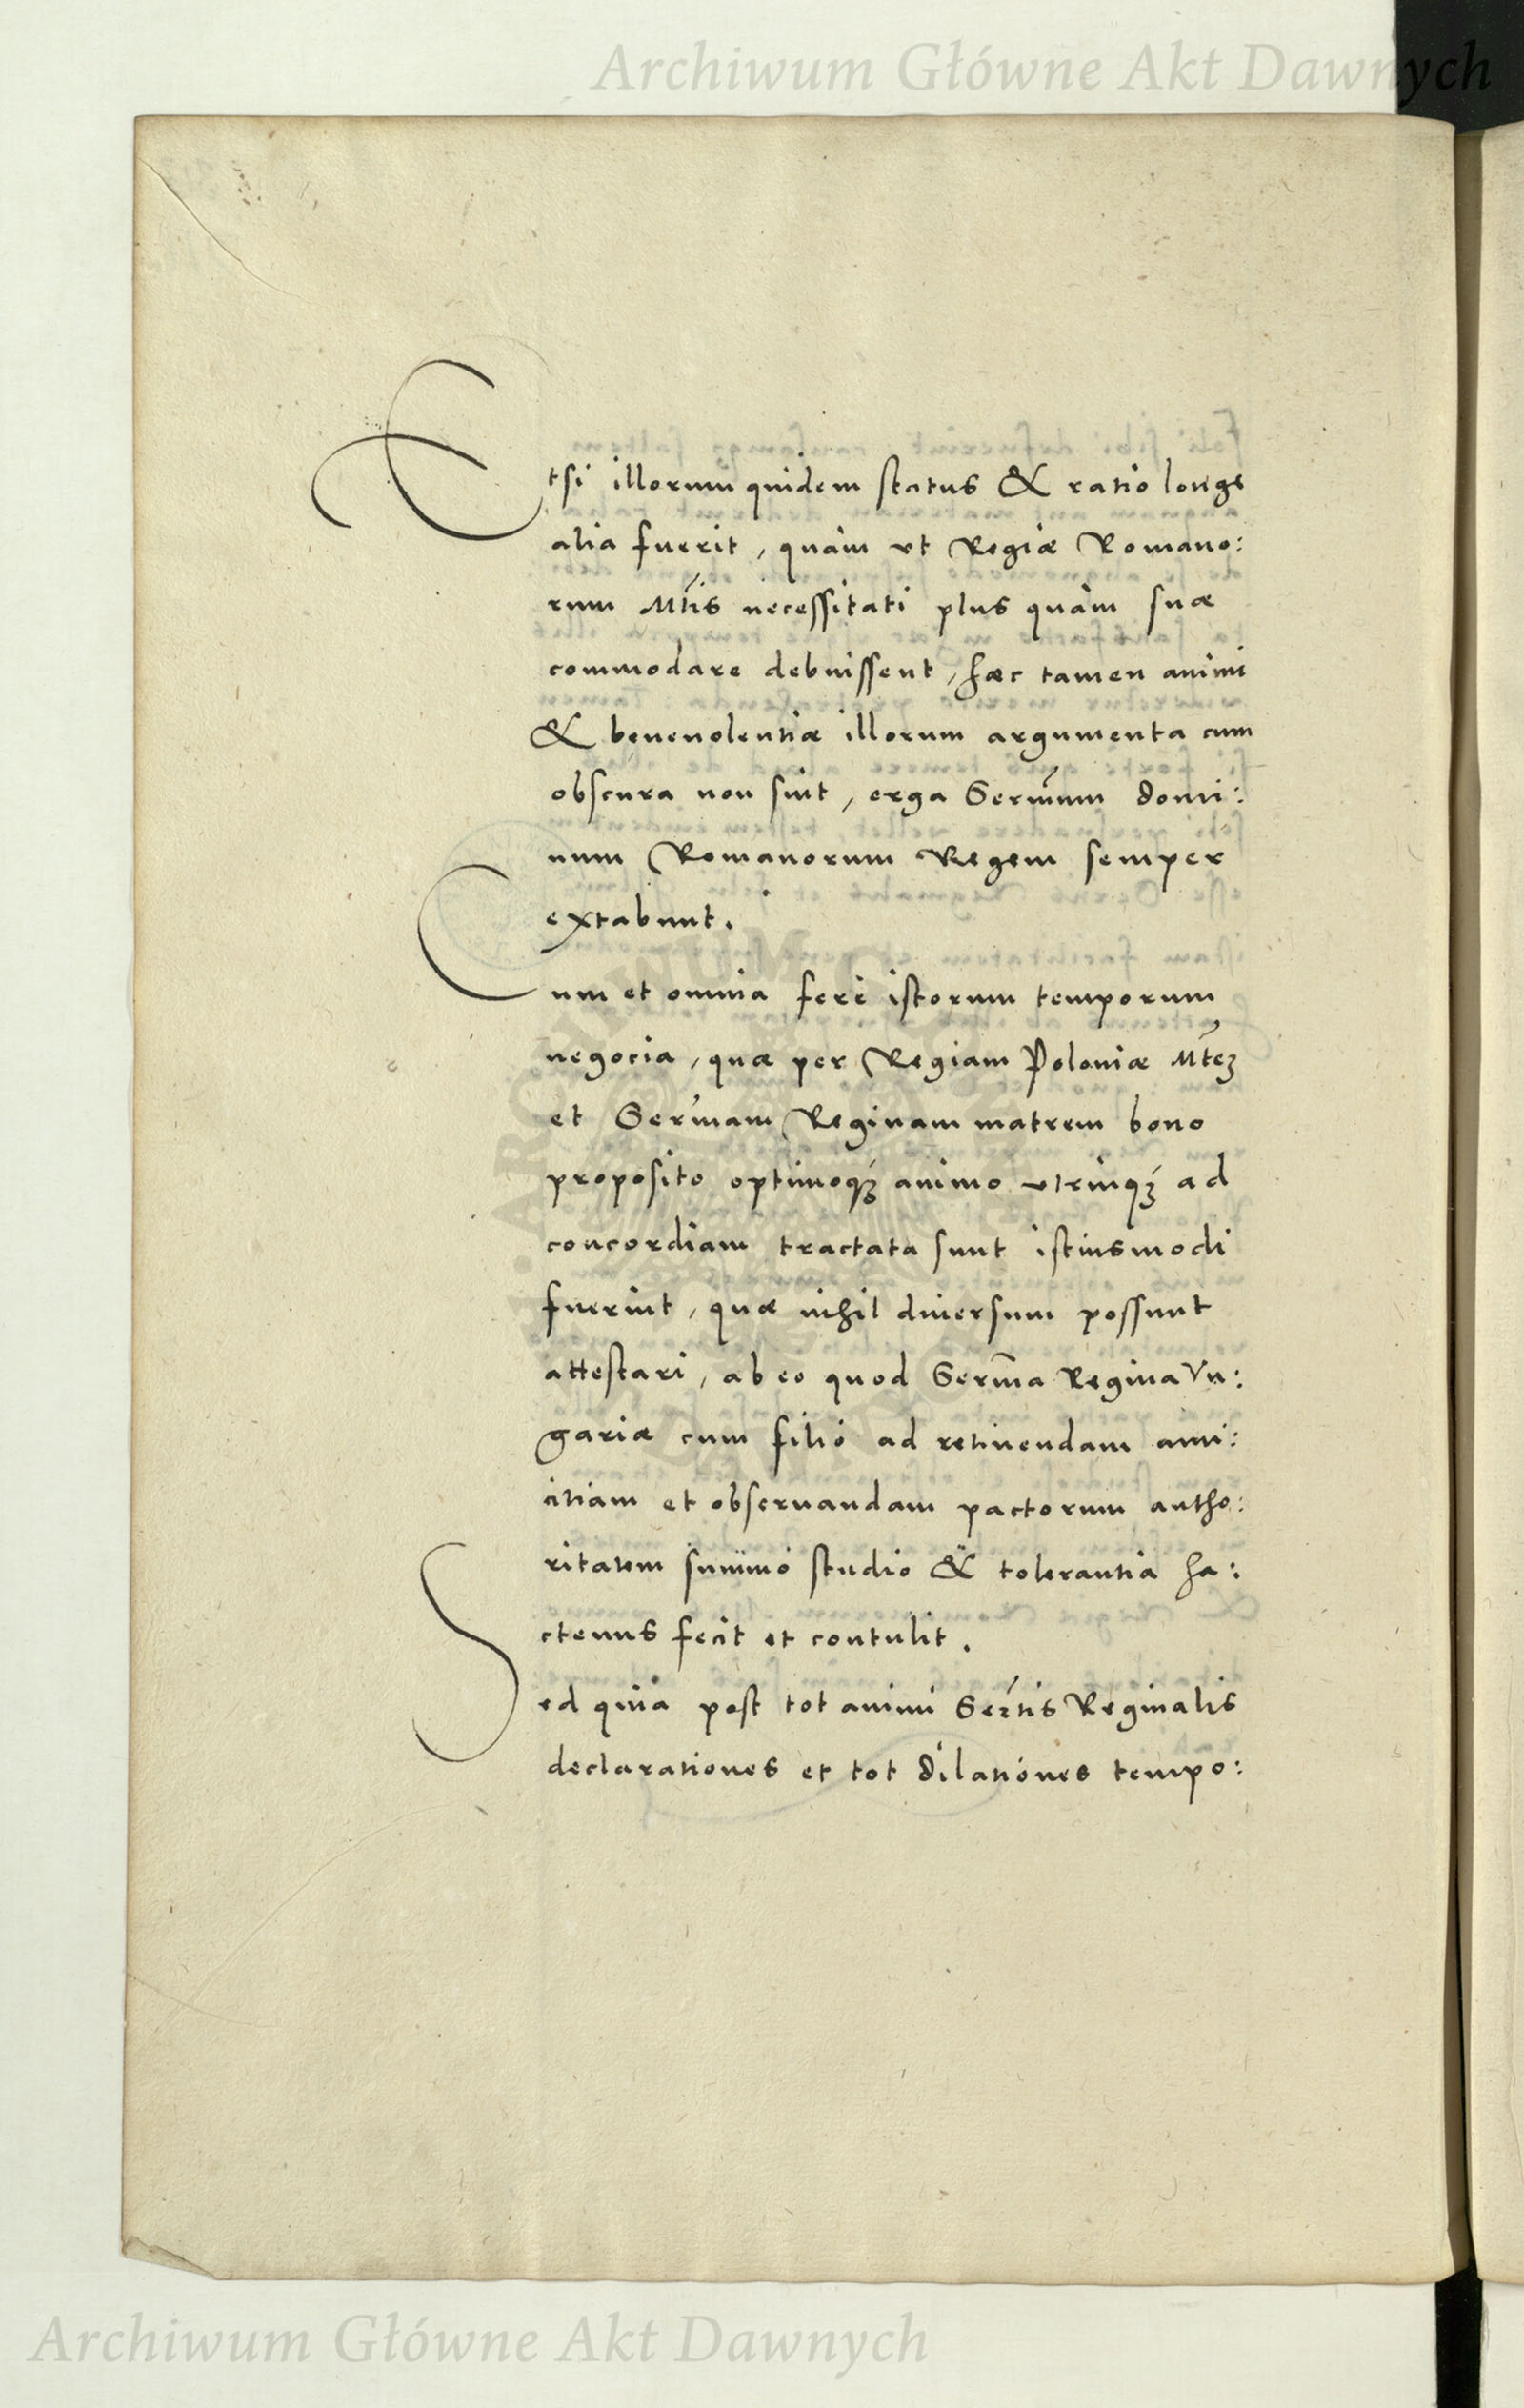 Archiwum Główne Akt Dawnych
Etsi illorum quidem status & ratio longe
alia fuerit, quàm vt Regiæ Romano:
rum Mtis necessitati plus quàm suæ
commodare debuissent, hæc tamen animi
& beneuolentiæ illorum argumenta cum
obscura non sint, erga Sermum domi:
num Romanorum Regem semper
extabunt.
Cum et omnia ferè istorum temporum
negocia, quæ per Regiam Poloniæ Mtez
et Sermam Reginam matrem bono
proposito optimoqȝ animo vtrinqȝ ad
concordiam tractata sunt istiusmodi
fuerint, quæ nihil diuersum possunt
attestari, ab eo quod Serma Regina Vn:
gariæ cum filio ad retinendam ami:
citiam et obseruandam pactorum autho:
ritatem summo studio & tolerantia ha:
ctenus fecit et contulit.
Sed quia post tot animi Sertis Reginalis
declarationes et tot dilationes tempo:
Archiwum Główne Akt Dawnych